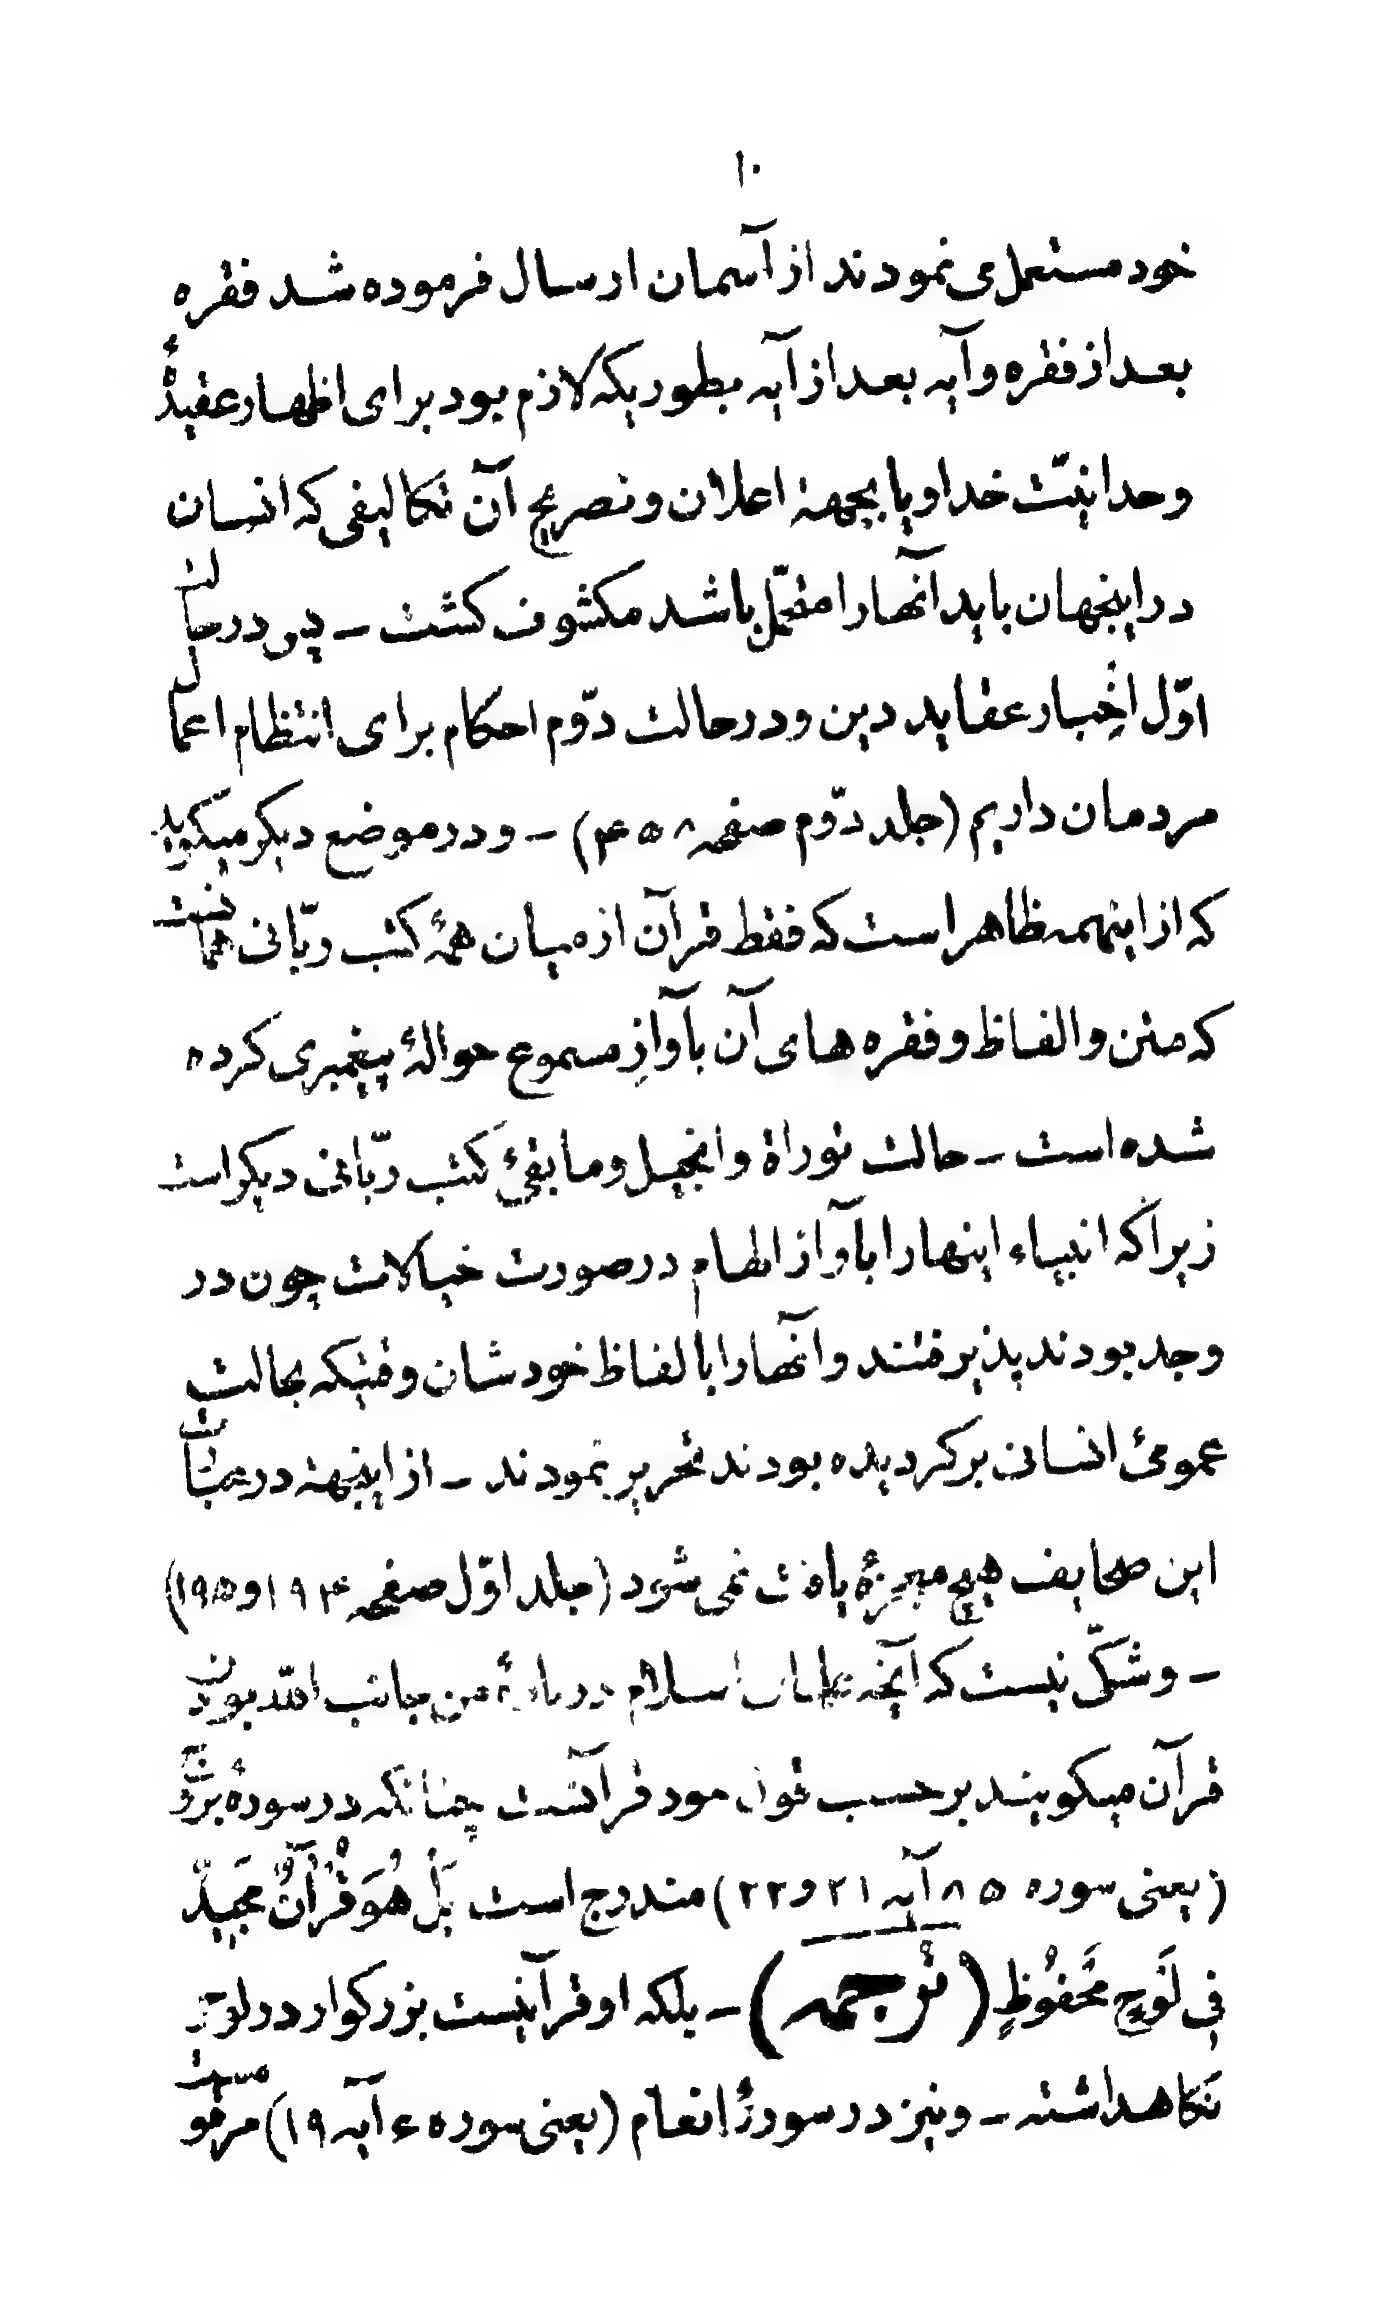 ۱۰
خود مستعمل می نمودند از آسمان ارسال فرموده شد فقره
بعد از فقره و آیه بعد از آیه بطوریکه لازم بود برای اظهار عقیدهٔ
وحدانیّت خدا و یا بجههٔ اعلان و تصریح آن تکالیفی که انسان
در اینجهان باید آنها را متحمّل باشد مکشوف کشت - پس در حالت
اوّل اخبار عقاید دین و در حالت دوّم احکام برای انتظام اعمال
مردمان داریم (جلد دوّم صفحه ۴۵۸) - و در موضع دیکر میکوید
که از اینهمه ظاهر است که فقط قرآن از میان همهٔ کتب ربّانی همانست
که متن و الفاظ و فقره های آن بآوازِ مسموع حوالهٔ پیغمبری کرده
شده است - حالت توراة و انجیل و مابقیٔ کتب ربّانی دیکر است
زیرا که انبیاء اینها را بآواز الهام در صورت خیالات چون در
وجد بودند پذیرفتند و آنها را بالفاظ خودشان وقتیکه بحالت
عمومیٔ انسانی برکردیده بودند تحریر نمودند - از اینجهة در عبارات
این صحایف هیچ معجزهٔ یافت نمی شود (جلد اوّل صفحه ۱۹۴ و ۱۹۵)
- و شکّی نیست که آنچه علمای اسلام در بارهٔ من جانب الله بودن
قرآن میکویند بر حسب قول خود قرآنست چنانکه در سورهٔ بروج
(یعنی سوره ۸۵ آیه ۲۱ و ۲۲) مندرج است بَلْ هُوَ قُرْآنٌ مَجِیدٌ
فِی لَوْحٍ مَحْفُوظٍ (ترجمه) - بلکه او قرآنیست بزرکوار در لوح
نکاهداشته - و نیز در سورهٔ انعام (یعنی سوره ۶ آیه ۱۹) مرقومست